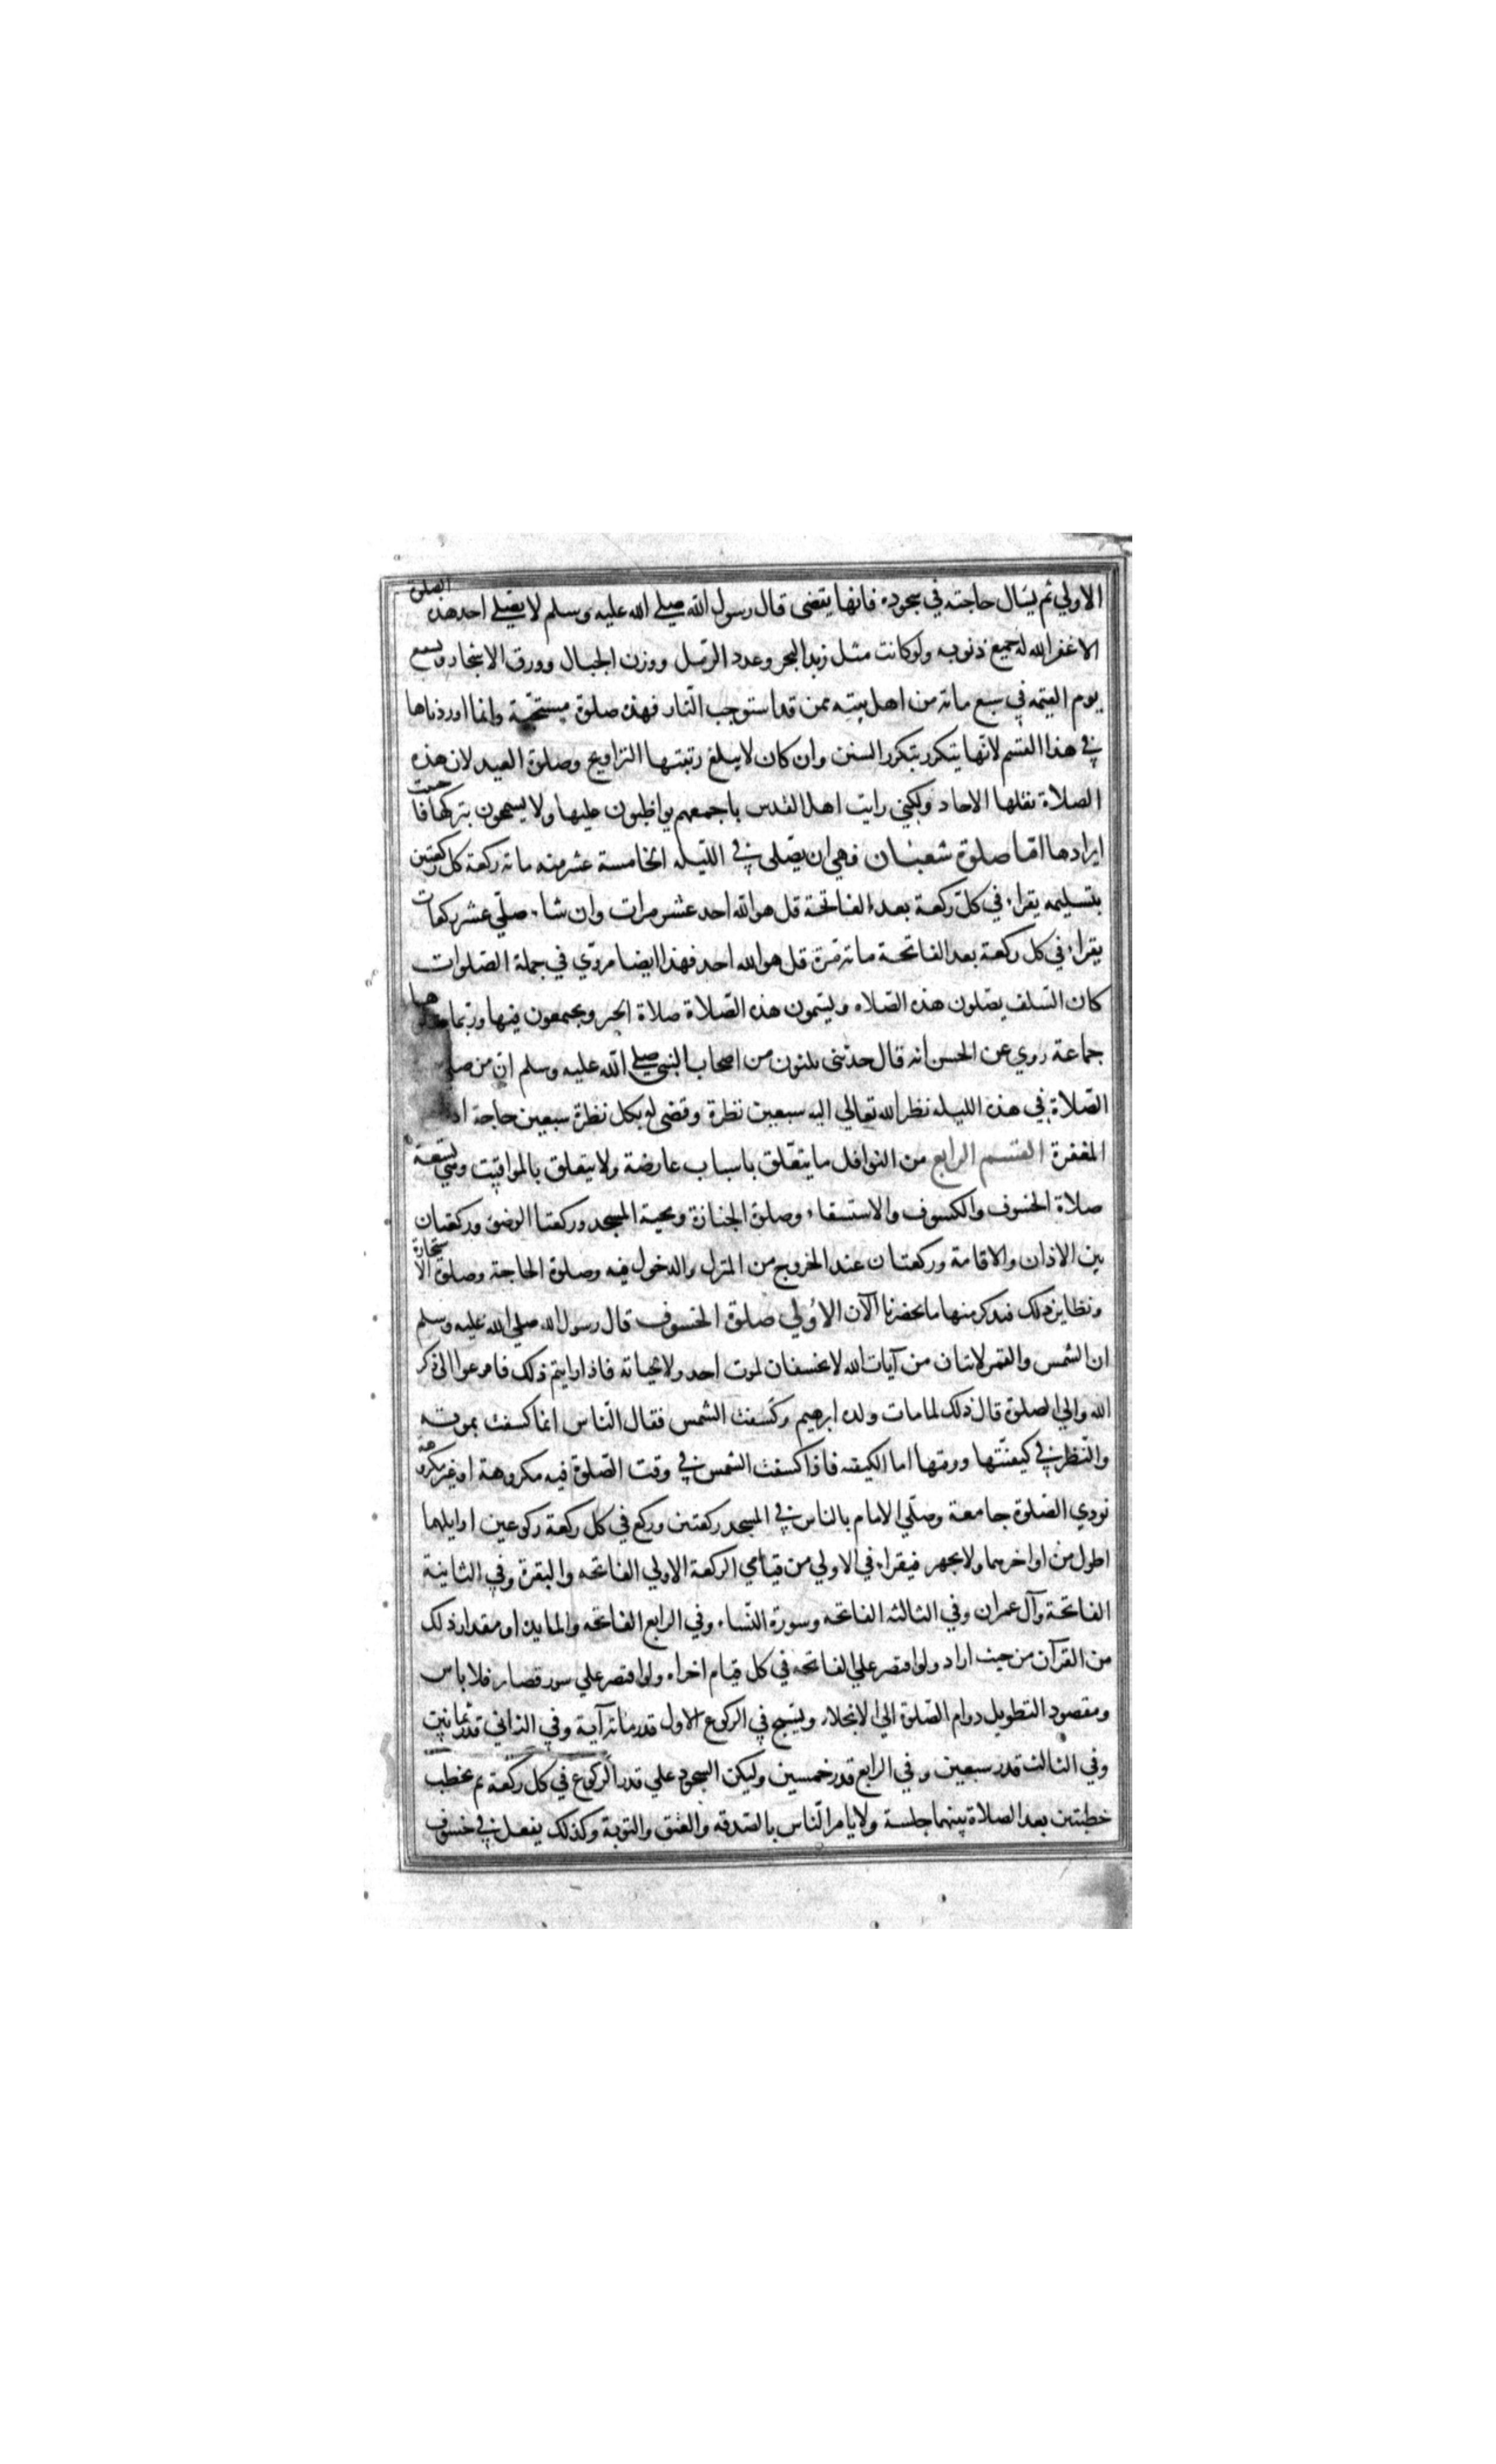 الاولي ثم يسال حاجته في سجوده فانها يتضى قال رسول الله صلى الله عليه وسلم لا يصلي احد هذه الصلوة
الا غفر الله له جميع ذنوبه ولو كانت مثل زبد البحر وعدد الرمل ووزن الجبال وورق الاشجار ويشفع
يوم القيمه في سبع مائة من اهل بيته ممن قد استوجب النار فهذه صلوة مستحبة وانما اوردناها
في هذا القسم لانها يتكرر بتكرر السنن وان كان لا يبلغ رتبتها التراويح وصلوة العيد لان هذه
الصلاة نقلها الاحاد ولكني رايت اهل القدس باجمعهم يواظبون عليها ولا يسمحون بتركها فاحببت
ايرادها اما صلوة شعبان فهي ان يصلى في الليله الخامسة عشر منه مائة ركعة كل ركعتين
بتسليمه يقراء في كل ركعة بعد الفاتحة قل هو الله احد عشر مرات وان شاء صلي عشر ركعات
يقراء في كل ركعة بعد الفاتحة مائة مرة قل هو الله احد فهذا ايضا مروي في جملة الصلوات
كان السلف يصلون هذه الصلاه ويسمون هذه الصلاة صلاة الخير ويجتمعون فيها وربما صلوها
جماعة روي عن الحسن انه قال حدثني ثلثون من اصحاب النبي صلى الله عليه وسلم ان من صلي
الصلاة في هذه الليله نظر الله تعالي اليه سبعين نظرة وقضى له بكل نظرة سبعين حاجة
المغفرة القسم الرابع من النوافل ما يتعلق باسباب عارضة ولا يتعلق بالمواقيت وهي تسعة
صلاة الخسوف والكسوف والاستسقاء وصلوة الجنازة وتحية المسجد وركعتا الوضو وركعتان
بين الاذان والاقامة وركعتان عند الخروج من المنزل والدخول فيه وصلوة الحاجة وصلوة الاستخارة
ونظاير ذلك فنذكر منها ما يحضرنا الآن الاولي صلوة الخسوف قال رسول الله صلي الله عليه وسلم
ان الشمس والقمر لايتان من آيات الله لا يخسفان لموت احد ولا لحياته فاذا رايتم ذلك فافزعوا الى ذكر
الله والي الصلوة قال ذلك لما مات ولده ابرهيم وكسفت الشمس فقال الناس انما كسفت بموته
والنظر في كيفيتها ووقتها اما الكيفيه فاذا كسفت الشمس في وقت الصلوة فيه مكروهة او غير مكروهة
نودي الصلوة جامعة وصلي الامام بالناس في المسجد ركعتين وركع في كل ركعة ركوعين اوايلهما
اطول من اواخرهما ولا يجهر فيقراء في الاولي من قيامي الركعة الاولي الفاتحه والبقرة وفي الثانية
الفاتحة وآل عمران وفي الثالثه الفاتحه وسورة النساء وفي الرابع الفاتحه والمايده او مقدار ذلك
من القرآن من حيث اراد ولو اقتصر علي الفاتحه في كل قيام اجزاه ولو اقتصر علي سور قصار فلا باس
ومقصود التطويل دوام الصلوة الي الانجلاء ويسبح في الركوع الاول قدر مائة آية وفي الثاني قدر ثمانين
وفي الثالث قدر سبعين وفي الرابع قدر خمسين وليكن السجود علي قدر الركوع في كل ركعة ثم يخطب
خطبتين بعد الصلاة بينهما جلسة ولا يامر الناس بالصدقه والعتق والتوبة وكذلك يفعل في خسوف